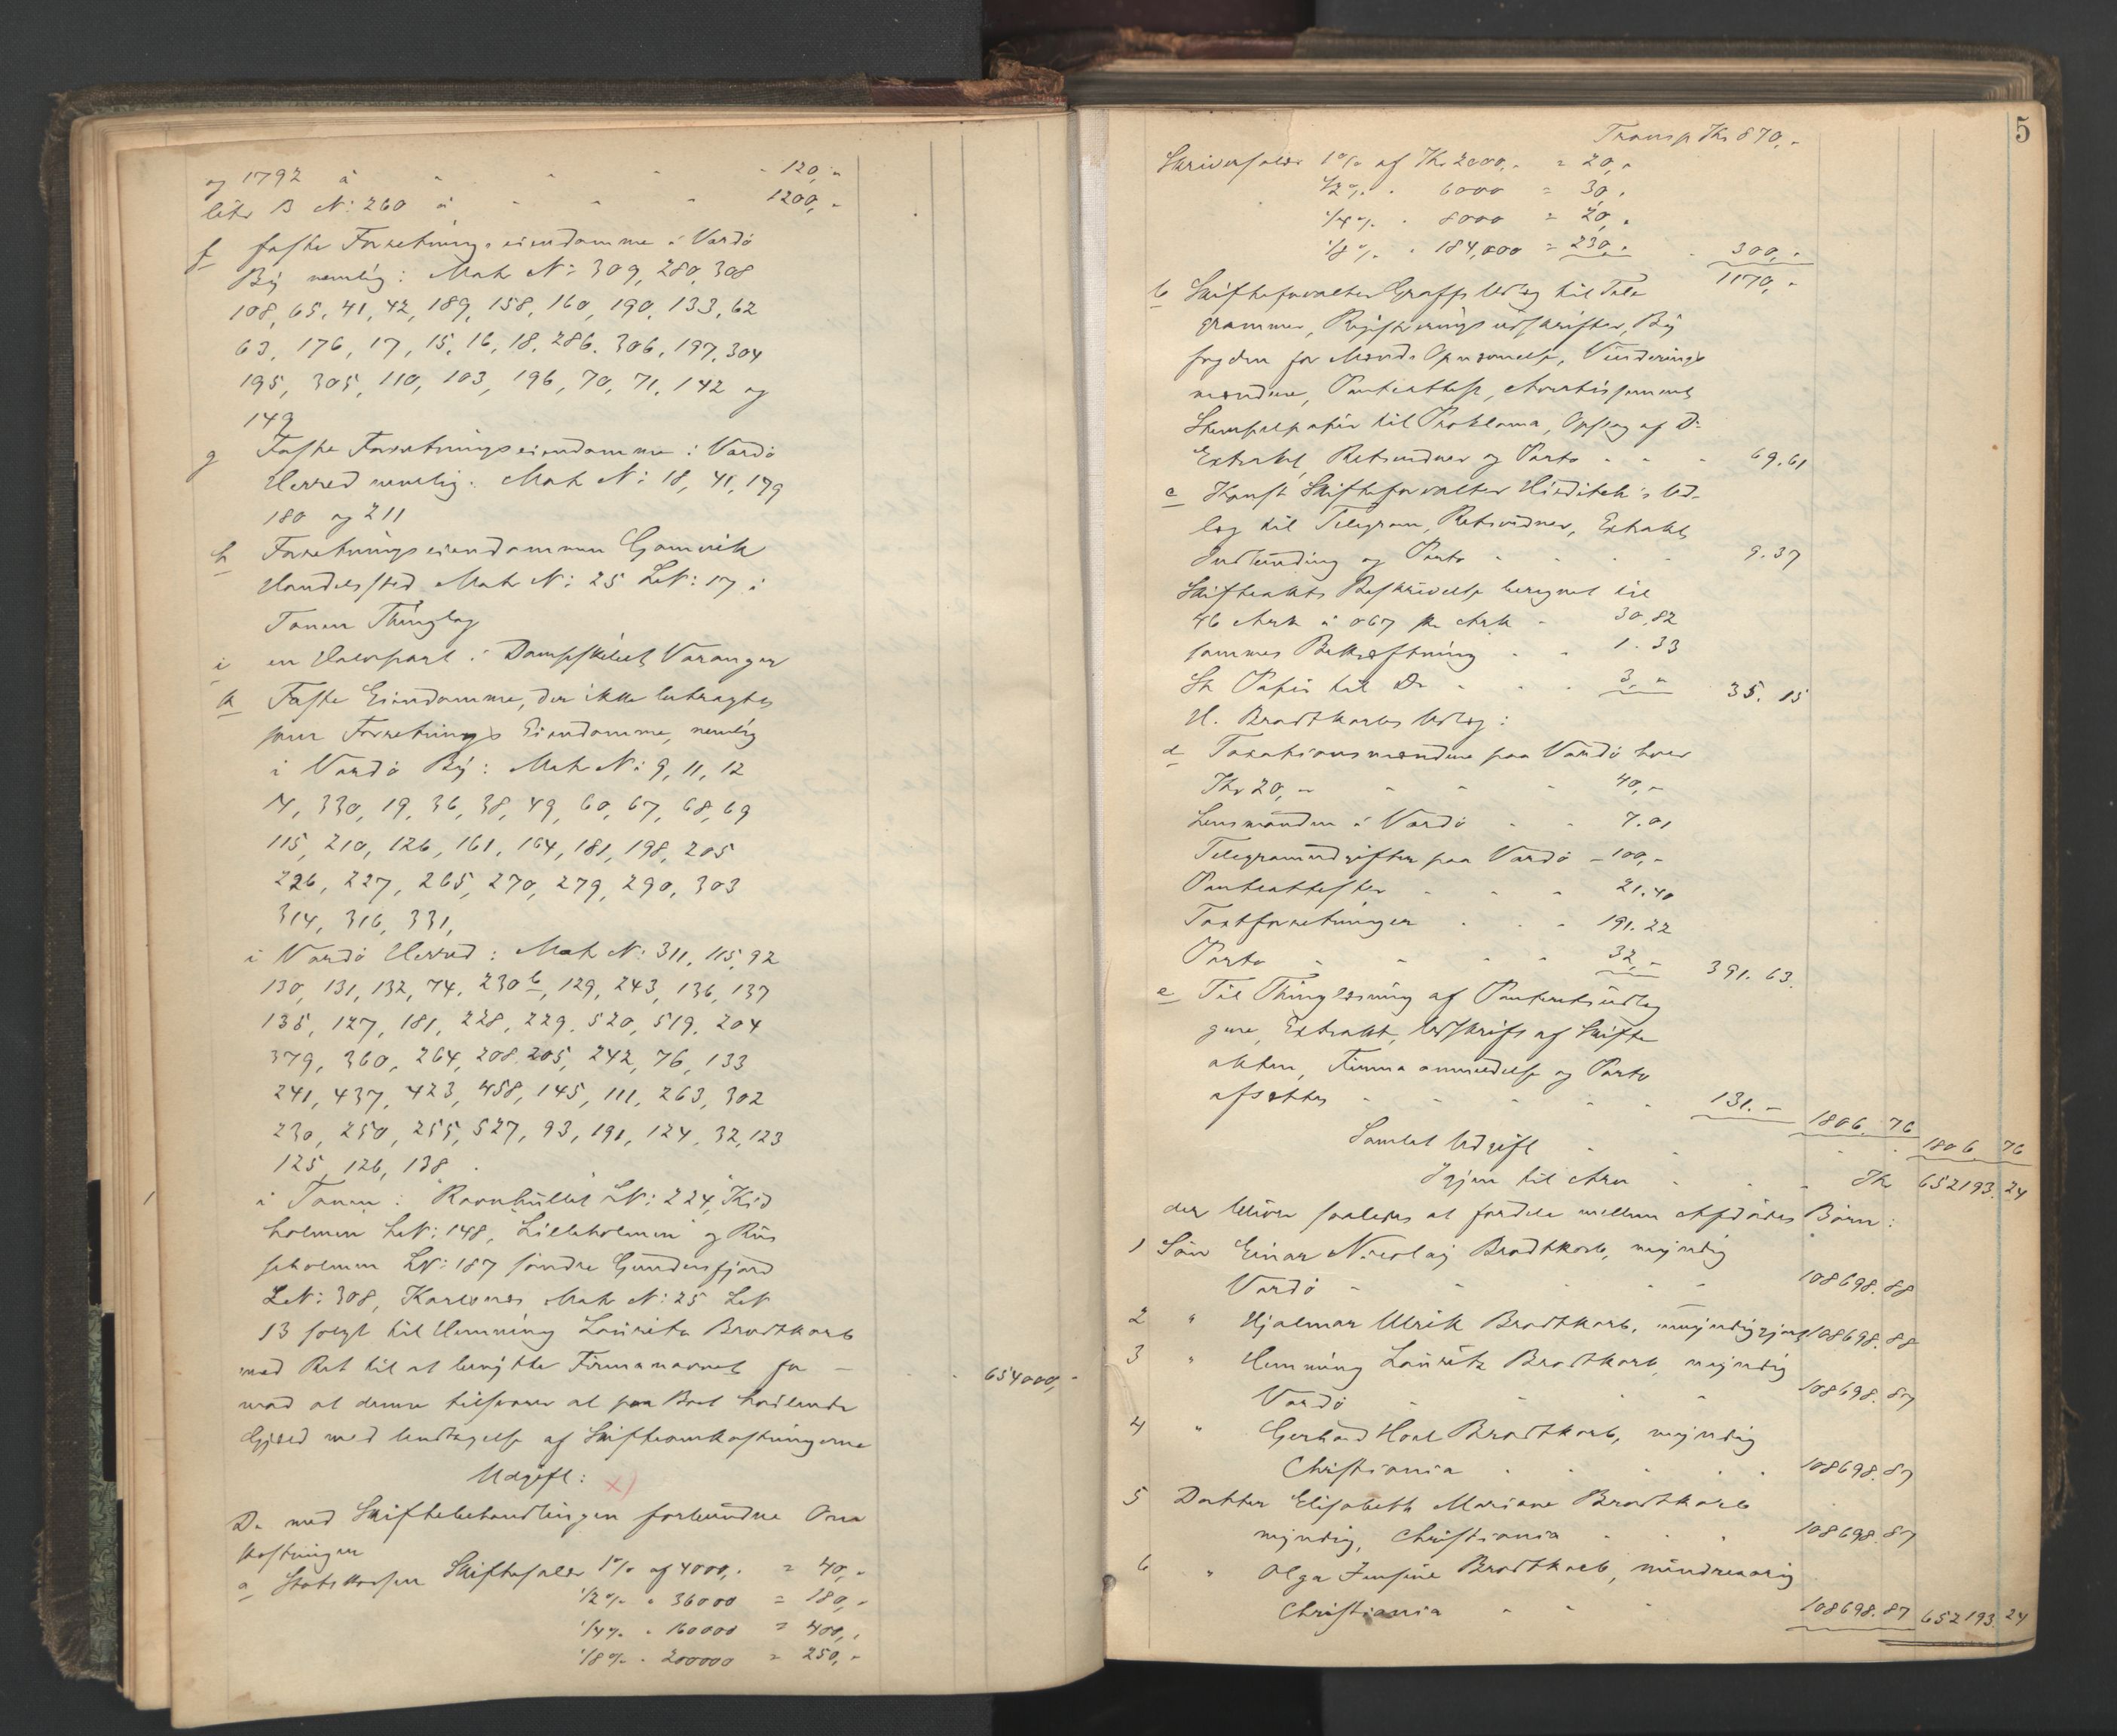 og 1792 à " " " " 120,-
litr B N: 260 à " " " 1200,-
f faste Forretningseiendomme i Vardö
By nemlig: Matr N: 309, 280, 308
108, 65, 41, 42, 189, 158, 160, 190, 133, 62
63, 176, 17, 15, 16, 18, 286, 306, 197, 304
195, 305, 110, 103, 196, 70, 71, 142 og
149
g Faste Forretningseiendomme i Vardö
Herred nemlig: Matr N: 18, 41, 179
180 og 211
h Forretningseiendommen Gamvik
Handelssted Matr N: 25 LN: 17 i
Tanen Thinglag
i en Halvpart i Dampskibet Varanger
k Faste Eiendomme, der ikke betragtes
som Forretnings Eiendomme, nemlig
i Vardö By: Matr N: 9, 11, 12
14, 330, 19, 36, 38, 49, 60, 67, 68, 69
115, 210, 126, 161, 164, 181, 198, 205
226, 227, 265, 270, 279, 290, 303
314, 316, 331,
i Vardö Herred: Matr N: 311, 115, 92
130, 131, 132, 74, 230 b, 129, 243, 136, 137
135, 127, 181, 228, 229, 520, 519, 204
379, 360, 264, 208, 205, 242, 76, 133
241, 437, 423, 458, 145, 111, 263, 302
230, 250, 255, 527, 93, 191, 124, 32, 123
125, 126, 138.
i Tanen: "Ravnhullet" LN: 224, Kid
holmen LN: 148, "Lilleholmen" og Rus
seholmen LN: 187 söndre Gundersfjord
LN: 308, Karlsnes Matr N: 25 LN
13 solgt til Henning Lauritz Brodtkorb
med Ret til at benytte Firmanavnet for - 654000,-
mod at denne tilsvarer al paa Boet hvilende
Gjæld med Undtagelse af Skifteomkostningerne
Udgift: x)
De med Skiftebehandlingen forbundne Om
kostninger
a Statskassen Skiftesalær 1% af 4000,- = 40,-
1/2% " 36000 = 180,-
1/4% " 160000 = 400,-
1/8% " 200000 = 250,-
5
Transp Kr 870,-
Skriversalær 1% af Kr 2000,- = 20,-
1/2% " 6000 = 30,-
1/4% " 8000 = 20,-
1/8% " 184,000 = 230,- 300,-
1170,-
b Skifteforvalter Graffs Udlæg til Tele
grammer, Registreringsudskrifter, By
fogden for Mænds Opnævnelse, Vurderings
mændene, Panteattest, Avertissement
Stempelpapir til Proklama, Opslag af Do
Extrakt, Retsvidner og Porto - - - 69.61
c Konst Skifteforvalter Ud-
læg til Telegram, Retsvidner, Extrakt
Indbinding og Porto - - 9.37
Skifteakts Beskrivelse beregnet til
46 Ark à 067 pr Ark - 30,82
sammes Bekræftning - - 1.33
St Papir til Do - - - 3,- 35.15
H. Brodtkorbs Udlæg:
d Taxationsmændene paa Vardö hver
Kr 20,- - - - 40,-
Lensmanden i Vardö - - 7.01
Telegramudgifter paa Vardö - 100,-
Panteattester - - - 21.40
Taxtforretninger - - - 191.22
Porto - - - - 32,- 391.63.
e Til Thinglæsning af Panteretsudlæg
gene, Extrakt, Udskrift af Skifte
akten, Firma anmeldelse og Porto
afsættes - - - - - 131.- 1806.76
Samlet Udgift - - - 1806.76
Igjen til Arv - - - Kr 652193.24
der bliver saaledes at fordele mellem Afdødes Börn:
1 Sön Einar Nicolaj Brodtkorb, myndig
Vardö - - - - - 108698.88
2 " Hjalmar Ulrik Brodtkorb, 108698.88
3 " Henning Lauritz Brodtkorb, myndig
Vardö - - - - 108698.87
4 " Gerhard Brodtkorb, myndig
Christiania - - - - - 108698.87
5 Datter Elisabeth Mariane Brodtkorb
myndig, Christiania - - - 108698.87
6 " Olga Brodtkorb, mindreaarig
Christiania - - - 108698.87 652193.24